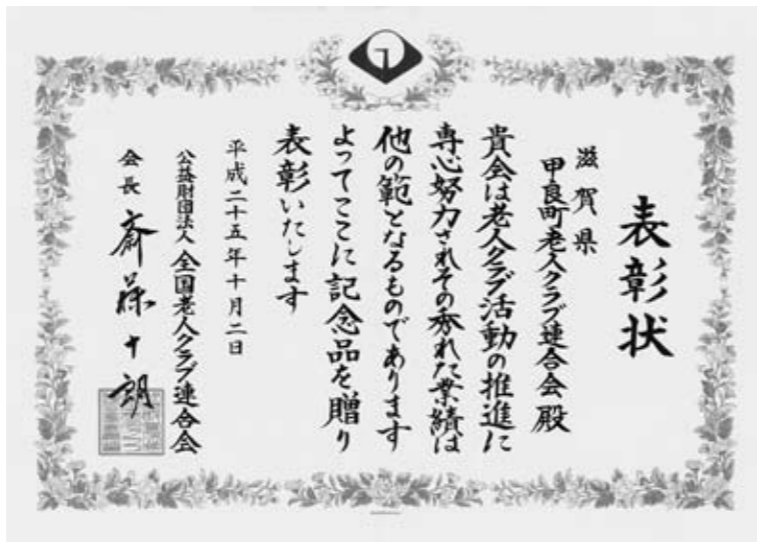 表彰状
滋賀県
甲良町老人クラブ連合会殿
貴会は老人クラブ活動の推進に
専心努力されその秀れた業績は
他の範となるものであります
よってここに記念品を贈り
表彰いたします
平成二十五年十月二日
公益財団法人 全国老人クラブ連合会
会長 斎藤十朗